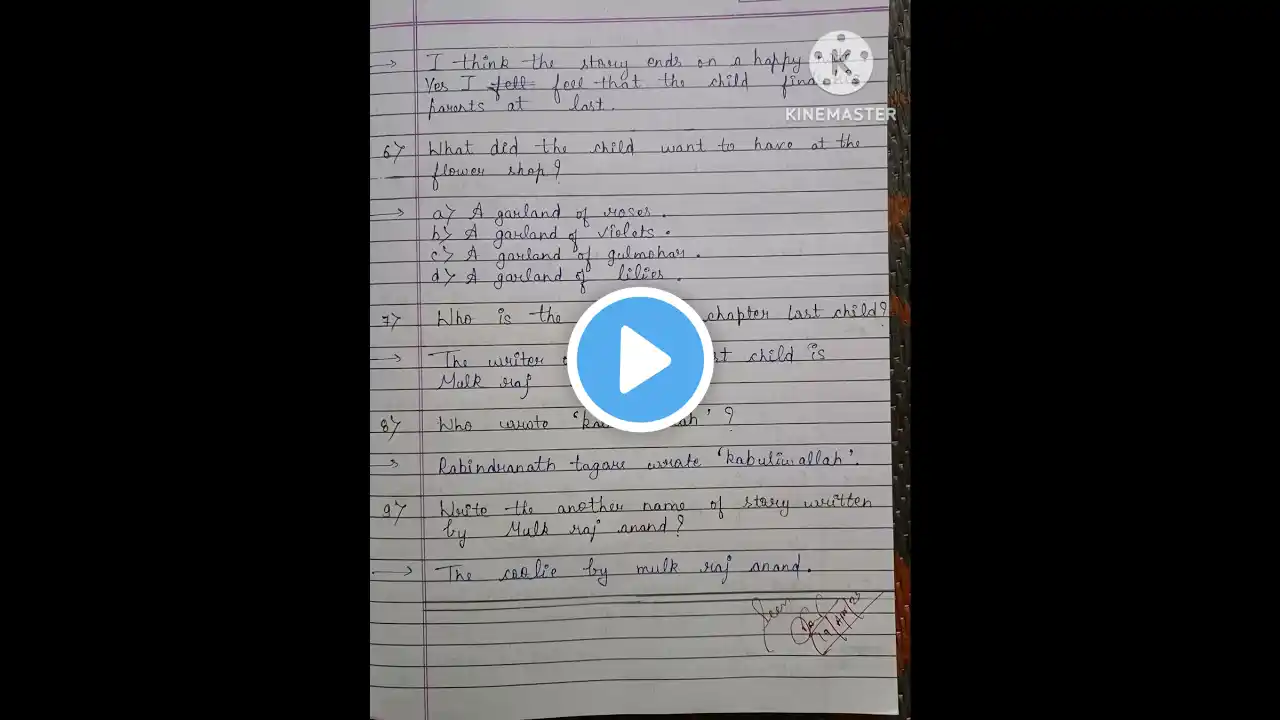 → I think the story ends on a happy
Yes I fell feel that the child
parents at last.
KINEMASTER
6) What did the child want to have at the
flower shop?
→ a) A garland of roses.
b) A garland of violets.
c) A garland of gulmohar.
d) A garland of lilies.
7) Who is the chapter last child?
→ The writer child is
Mulk raj
8) Who wrote ?
→ Rabindranath tagore wrote 'kabuliwallah'.
9) Write the another name of story written
by Mulk raj anand?
→ The coolie by mulk raj anand.
Seen